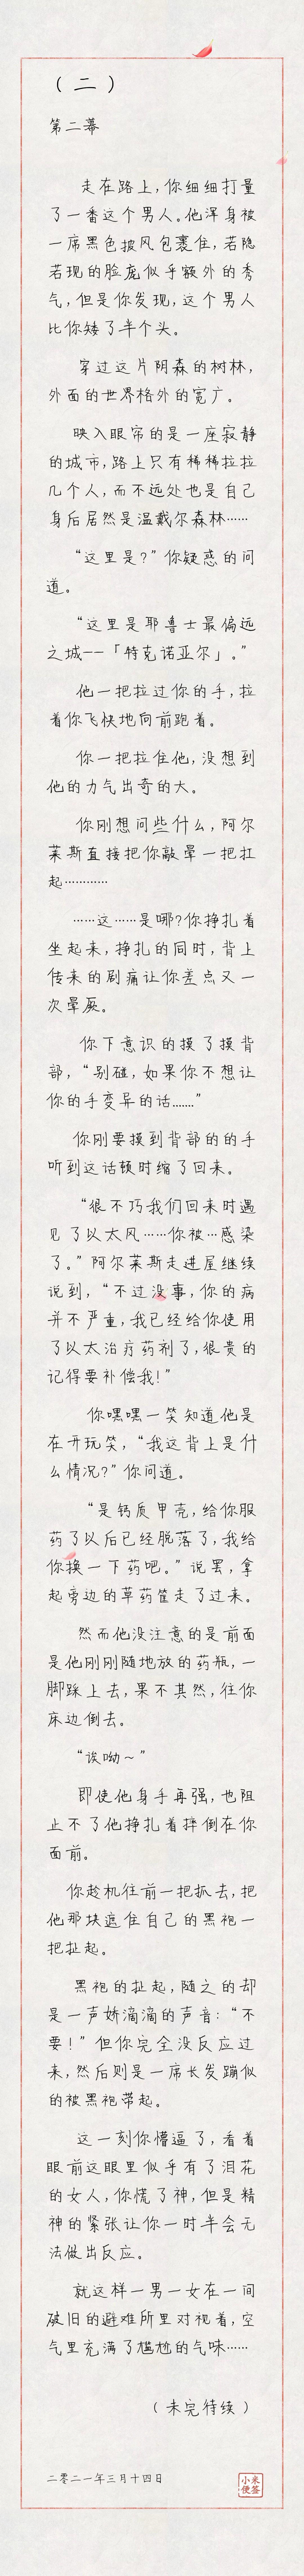 （二）
第二幕
走在路上，你细细打量
了一番这个男人。他浑身被
一席黑色披风包裹住，若隐
若现的脸庞似乎额外的秀
气，但是你发现，这个男人
比你矮了半个头。
穿过这片阴森的树林，
外面的世界格外的宽广。
映入眼帘的是一座寂静
的城市，路上只有稀稀拉拉
几个人，而不远处也是自己
身后居然是温戴尔森林……
“这里是？”你疑惑的问
道。
“这里是耶鲁士最偏远
之城——「特克诺亚尔」。”
他一把拉过你的手，拉
着你飞快地向前跑着。
你一把拉住他，没想到
他的力气出奇的大。
你刚想问些什么，阿尔
莱斯直接把你敲晕一把扛
起…………
……这……是哪？你挣扎着
坐起来，挣扎的同时，背上
传来的剧痛让你差点又一
次晕厥。
你下意识的摸了摸背
部，“别碰，如果你不想让
你的手变异的话.......”
你刚要摸到背部的的手
听到这话顿时缩了回来。
“很不巧我们回来时遇
见了以太风……你被…感染
了。”阿尔莱斯走进屋继续
说到，“不过没事，你的病
并不严重，我已经给你使用
了以太治疗药剂了，很贵的
记得要补偿我！”
你嘿嘿一笑知道他是
在开玩笑，“我这背上是什
么情况？”你问道。
“是钙质甲壳，给你服
药了以后已经脱落了，我给
你换一下药吧。”说罢，拿
起旁边的草药筐走了过来。
然而他没注意的是前面
是他刚刚随地放的药瓶，一
脚踩上去，果不其然，往你
床边倒去。
“诶呦～”
即使他身手再强，也阻
止不了他挣扎着摔倒在你
面前。
你趁机往前一把抓去，把
他那块遮住自己的黑袍一
把扯起。
黑袍的扯起，随之的却
是一声娇滴滴的声音：“不
要！”但你完全没反应过
来，然后则是一席长发蹦似
的被黑袍带起。
这一刻你懵逼了，看着
眼前这眼里似乎有了泪花
的女人，你慌了神，但是精
神的紧张让你一时半会无
法做出反应。
就这样一男一女在一间
破旧的避难所里对视着，空
气里充满了尴尬的气味……
（未完待续）
二零二一年三月十四日
小米
便签